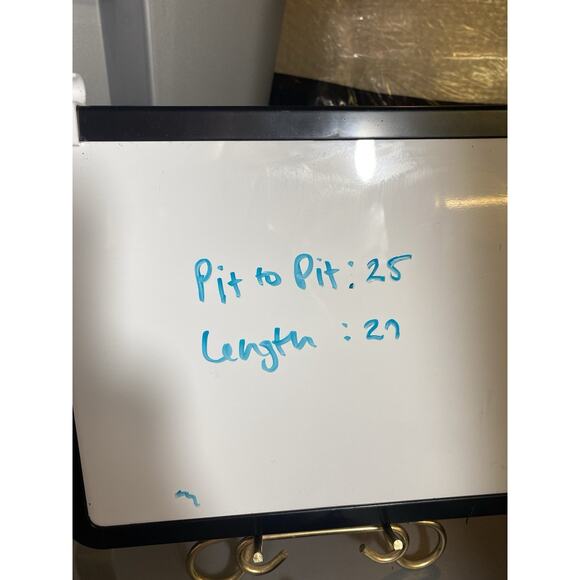 Pit to Pit: 25
Length : 27